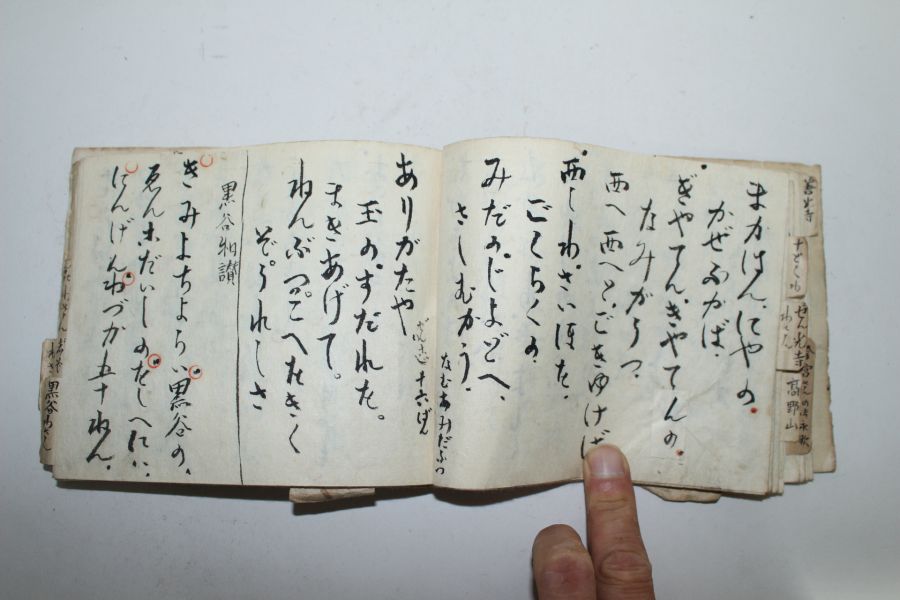 まかはんにやの
かぜふかば、
ぎやてん、ぎやてんの
なみがうつ
西へ西へと、ごをゆけば
西しわ、さいほを
ごくらくの
みだの、じよどへ、
さしむかう、
なむあみだぶつ
十六ばん
ありがたや
玉の、すだれを。
まきあげて。
ねんぶつ、こへをきく
ぞ、うれしさ
黒谷和讃
きみよちよらい黒谷の、
ゑんこだいしのをしへにハ、
にんげんわづか五十ねん、
善光寺
高野山
黒谷わさん